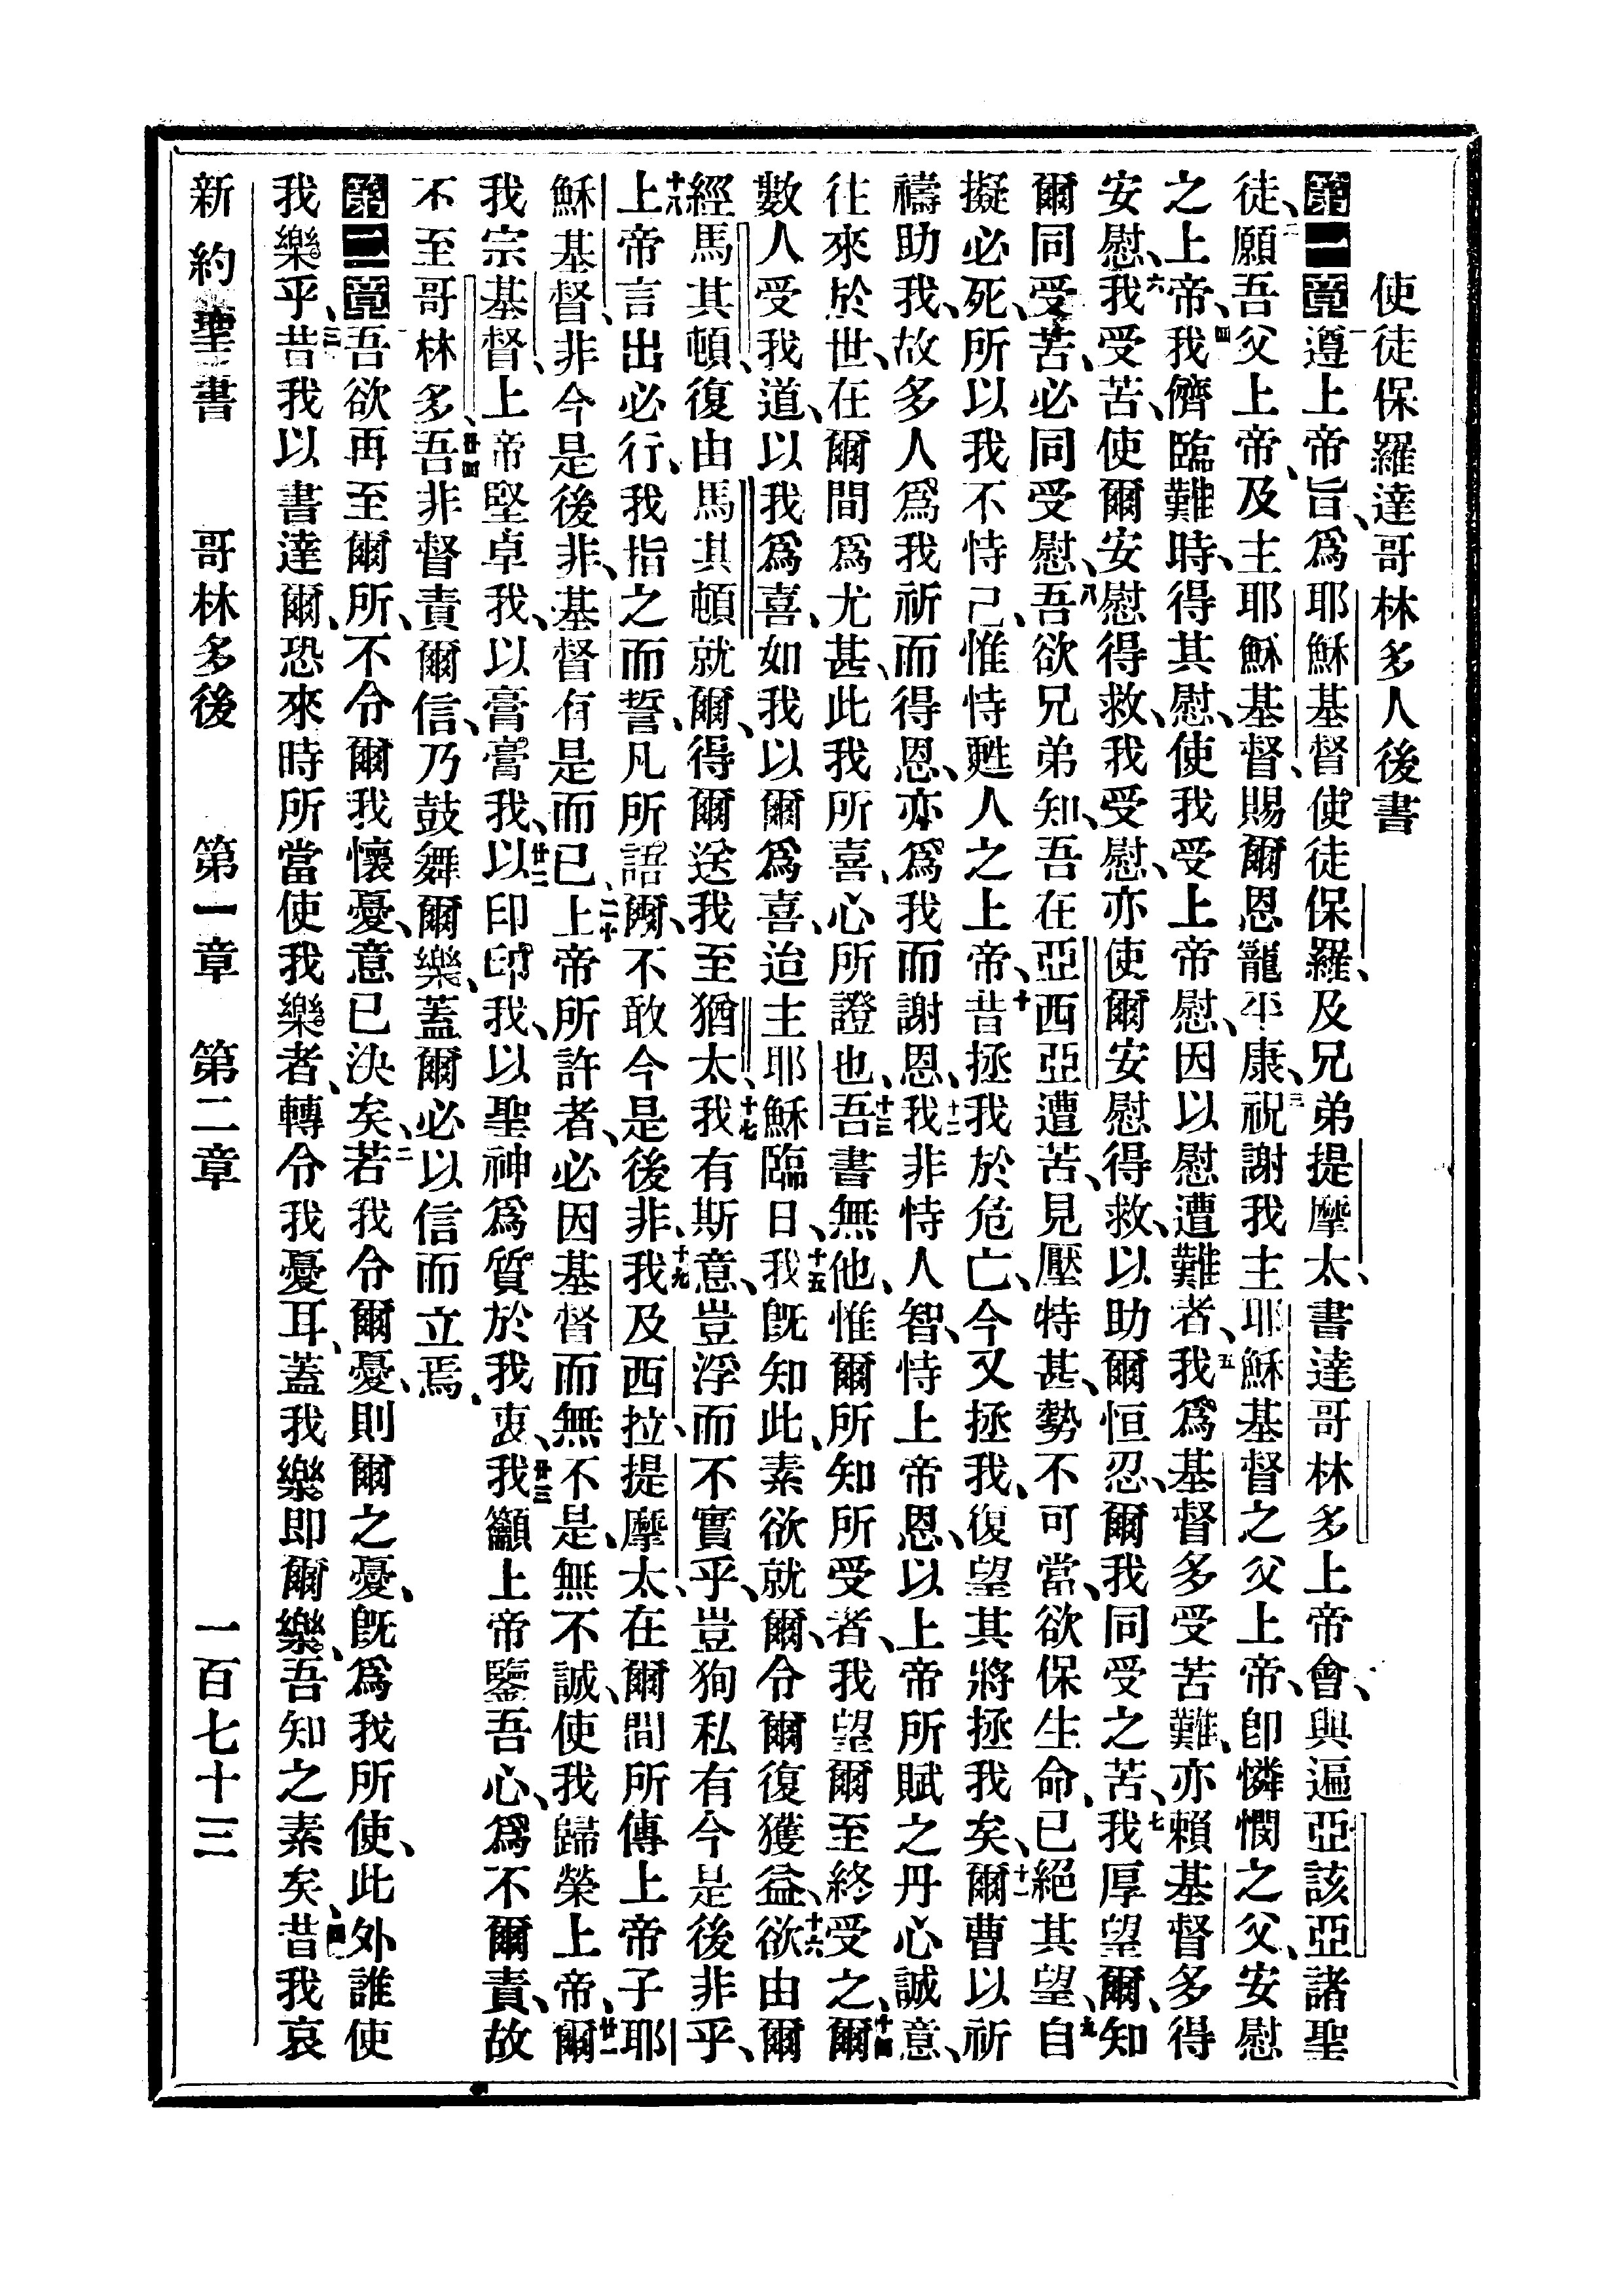 使徒保羅達哥林多人後書
第一章一遵上帝旨、爲耶穌基督使徒保羅、及兄弟提摩太、書達哥林多上帝會、與遍亞該亞諸聖
徒、二願吾父上帝、及主耶穌基督、賜爾恩寵平康、三祝謝我主耶穌基督之父上帝、卽憐憫之父、安慰
之上帝、四我儕臨難時、得其慰、使我受上帝慰、因以慰遭難者、五我爲基督多受苦難、亦賴基督多得
安慰、六我受苦、使爾安慰得救、我受慰、亦使爾安慰得救、以助爾恒忍、爾我同受之苦、七我厚望爾、知
爾同受苦、必同受慰、八吾欲兄弟知、吾在亞西亞遭苦、見壓特甚、勢不可當、欲保生命、已絕其望、九自
擬必死、所以我不恃己、惟恃甦人之上帝、十昔拯我於危亡、今又拯我、復望其將拯我矣、十一爾曹以祈
禱助我、故多人爲我祈而得恩、亦爲我而謝恩、十二我非恃人智、恃上帝恩、以上帝所賦之丹心誠意、
往來於世、在爾間爲尤甚、此我所喜、心所證也、十三吾書無他、惟爾所知所受者、我望爾至終受之、十四爾
數人受我道、以我爲喜、如我以爾爲喜、迨主耶穌臨日、十五我旣知此、素欲就爾、令爾復獲益、十六欲由爾
經馬其頓、復由馬其頓就爾、得爾送我至猶太、十七我有斯意、豈浮而不實乎、豈狥私有今是後非乎、
十八上帝言出必行、我指之而誓、凡所語爾、不敢今是後非、十九我及西拉、提摩太、在爾間所傳上帝子耶
穌基督、非今是後非、基督有是而已、二十上帝所許者、必因基督而無不是、無不誠、使我歸榮上帝、廿一爾
我宗基督、上帝堅卓我、以膏膏我、廿二以印印我、以聖神爲質於我衷、廿三我籲上帝鑒吾心、爲不爾責、故
不至哥林多、廿四吾非督責爾信、乃鼓舞爾樂、蓋爾必以信而立焉、
第二章一吾欲再至爾所、不令爾我懷憂、意已決矣、二若我令爾憂、則爾之憂、旣爲我所使、此外誰使
我樂乎、三昔我以書達爾、恐來時所當使我樂者、轉令我憂耳、蓋我樂卽爾樂、吾知之素矣、四昔我哀
新約聖書　哥林多後　第一章　第二章　一百七十三